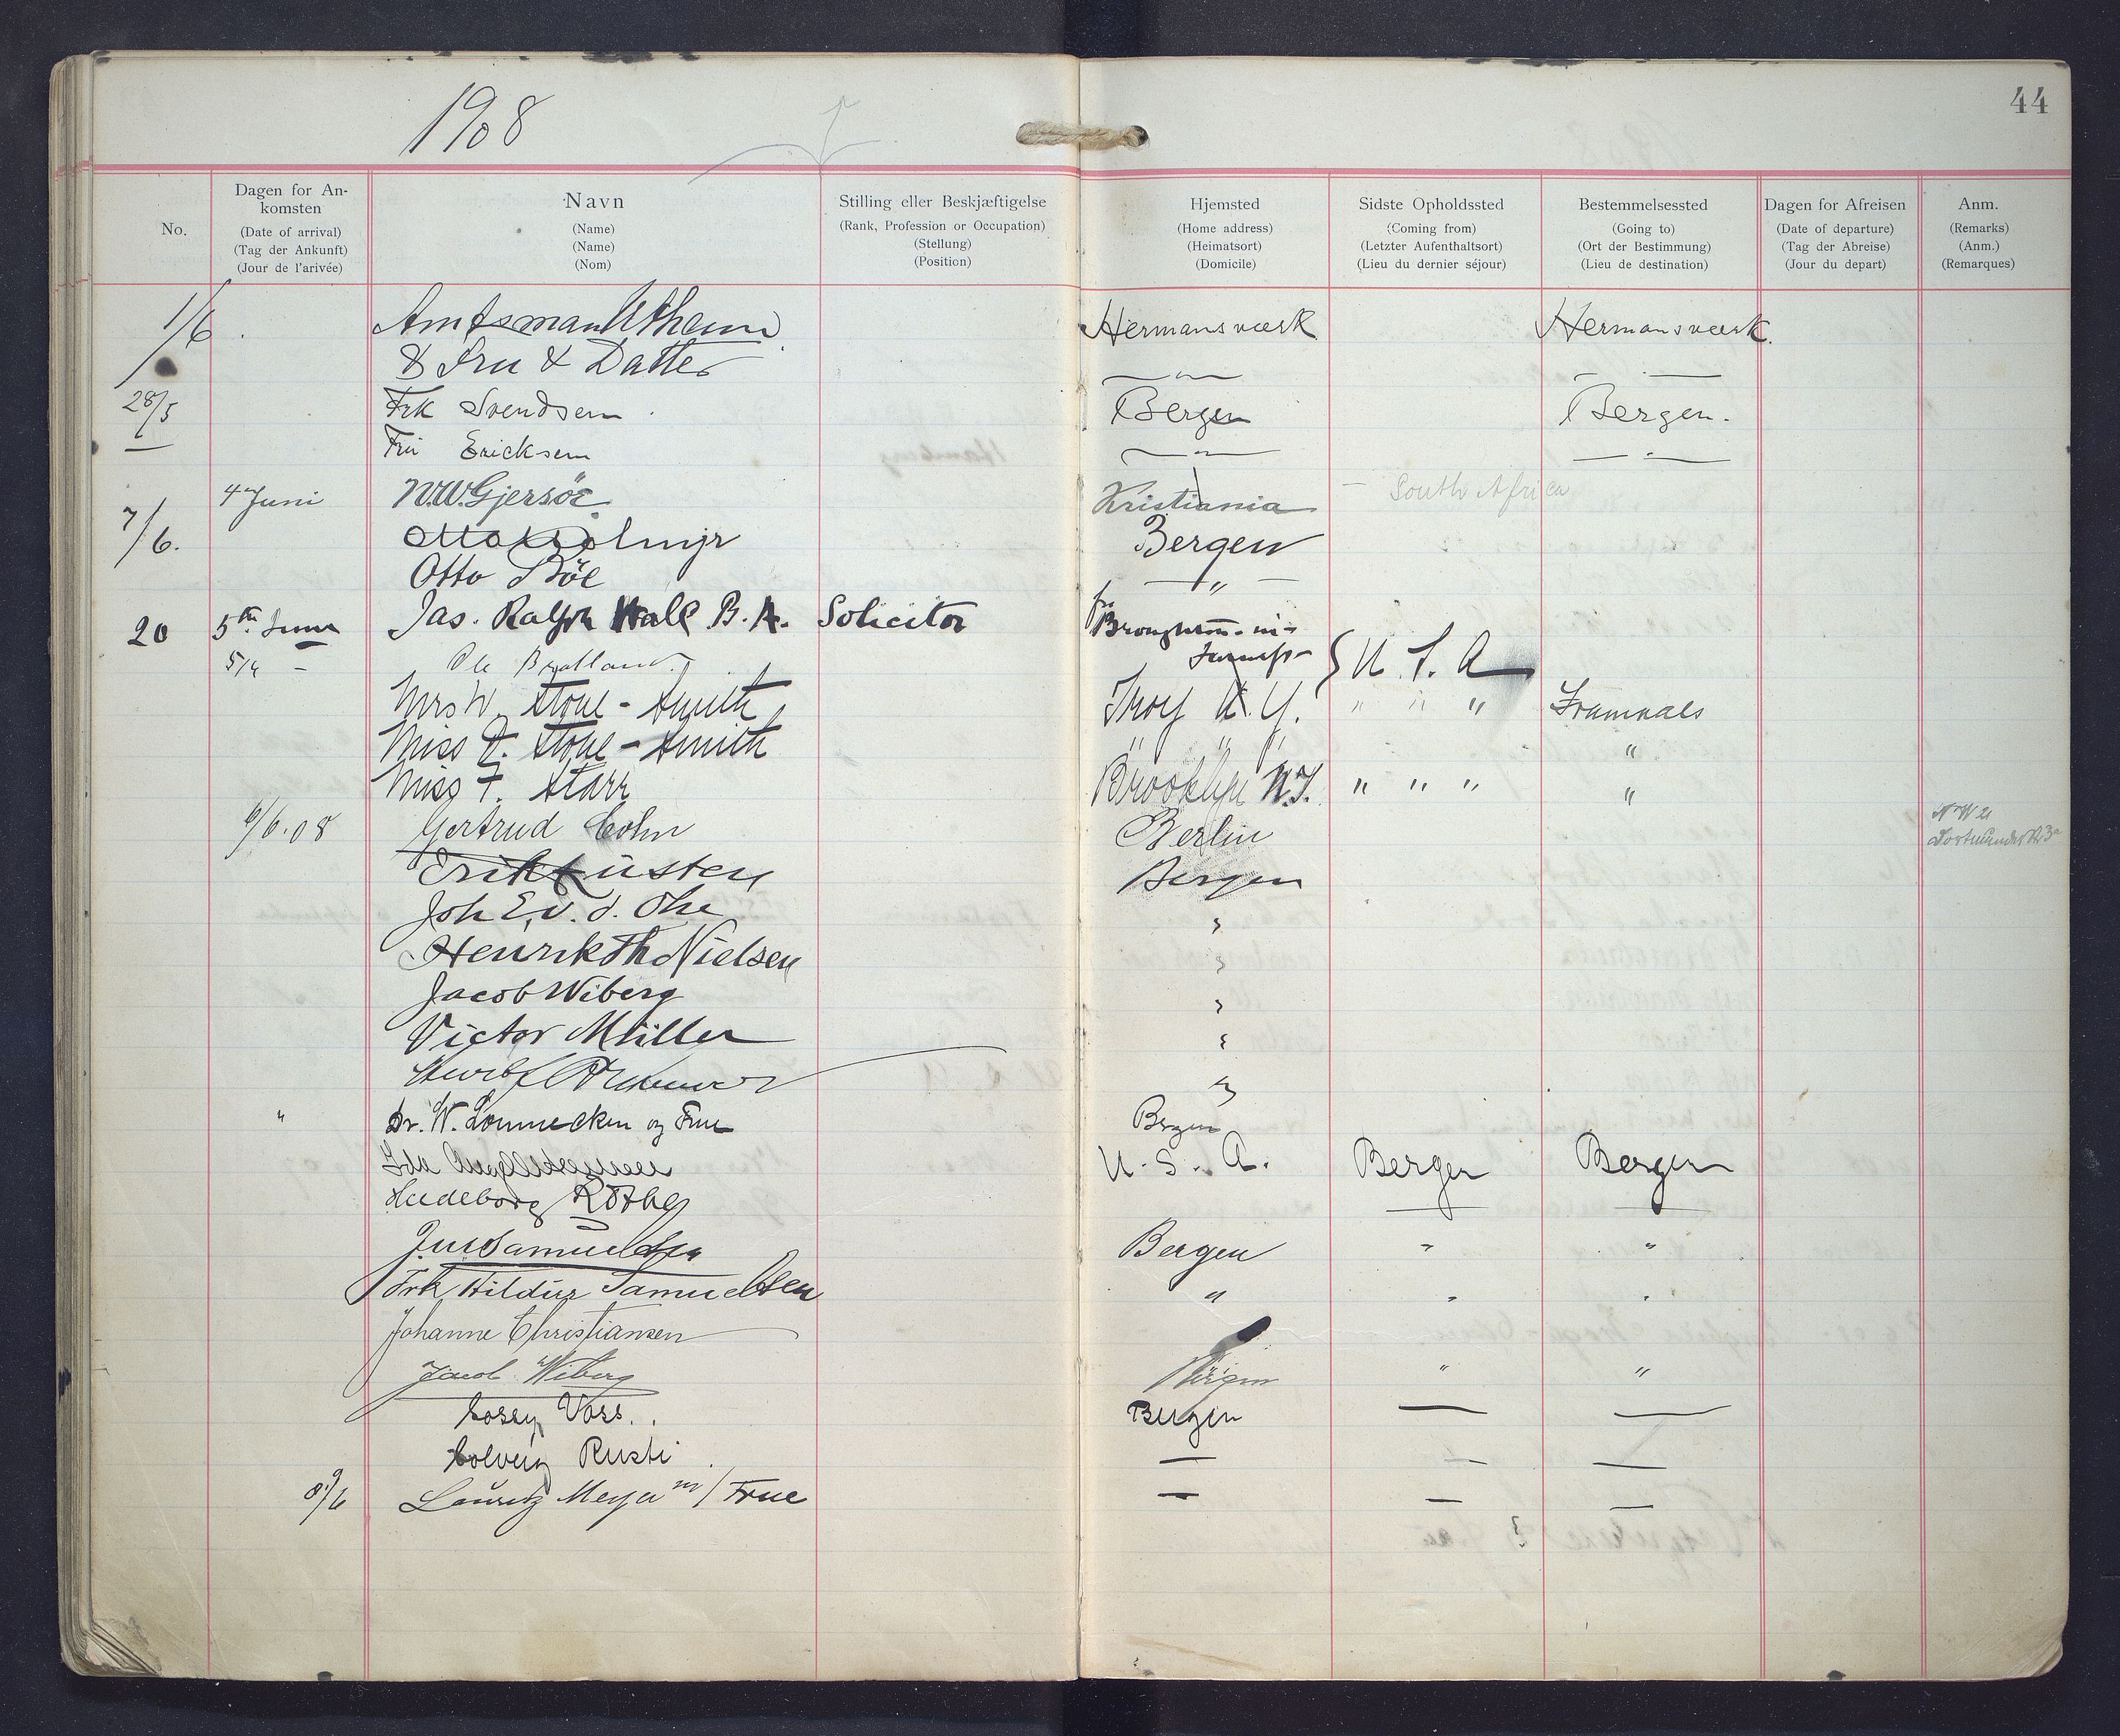 1908
44
No.
Dagen for An-
komsten
(Date of arrival)
(Tag der Ankunft)
(Jour de l'arivée)
Navn
(Name)
(Name)
(Nom)
Stilling eller Beskjæftigelse
(Rank, Profession or Occupation)
(Stellung)
(Position)
Hjemsted
(Home address)
(Heimatsort)
(Domicile)
Sidste Opholdssted
(Coming from)
(Letzter Aufenthaltsort)
(Lieu du dernier séjour)
Bestemmelsessted
(Going to)
(Ort der Bestimmung)
(Lieu de destination)
Dagen for Afreisen
(Date of departure)
(Tag der Abreise)
(Jour du depart)
Anm.
(Remarks)
(Anm.)
(Remarques)
1/6 Amtsmand Utheim Hermansværk Hermansværk.
& Fru & Datter — " — — " —
28/5 Frk Svendsen. Bergen Bergen.
— Fru Ericksen — " — — " —
4 Juni N.W. Gjersöe Kristiania — South Africa
7/6. Bergen
Otto Böe — " —
20 5th June Jas. Ralph Hall B.A. Solicitor
5/6 — Ole Bratland U.S.A
Mrs W. Stone-Smith Troy N.Y. " " "
Miss D. Stone-Smith " " " "
Miss F. Starr Brooklyn N.Y. " " " "
6/6.08 Gertrud Cohn Berlin
Bergen
Joh E. v. d. Ohe "
Henrik Th Nielsen "
Jacob Wiberg "
Victor Müller "
"
" Dr. W. Lonnecken og Frue Bergen
Ida U.S.A. Bergen Bergen
Samuelsen Bergen " "
Frk Hildur Samuelsen " " "
Johanne Christiansen
Jacob Wiberg Bergen " "
Voss.. Bergen — —
Solveig Rusti. — — —
8/6 Lauritz Meyer m/Frue — — —